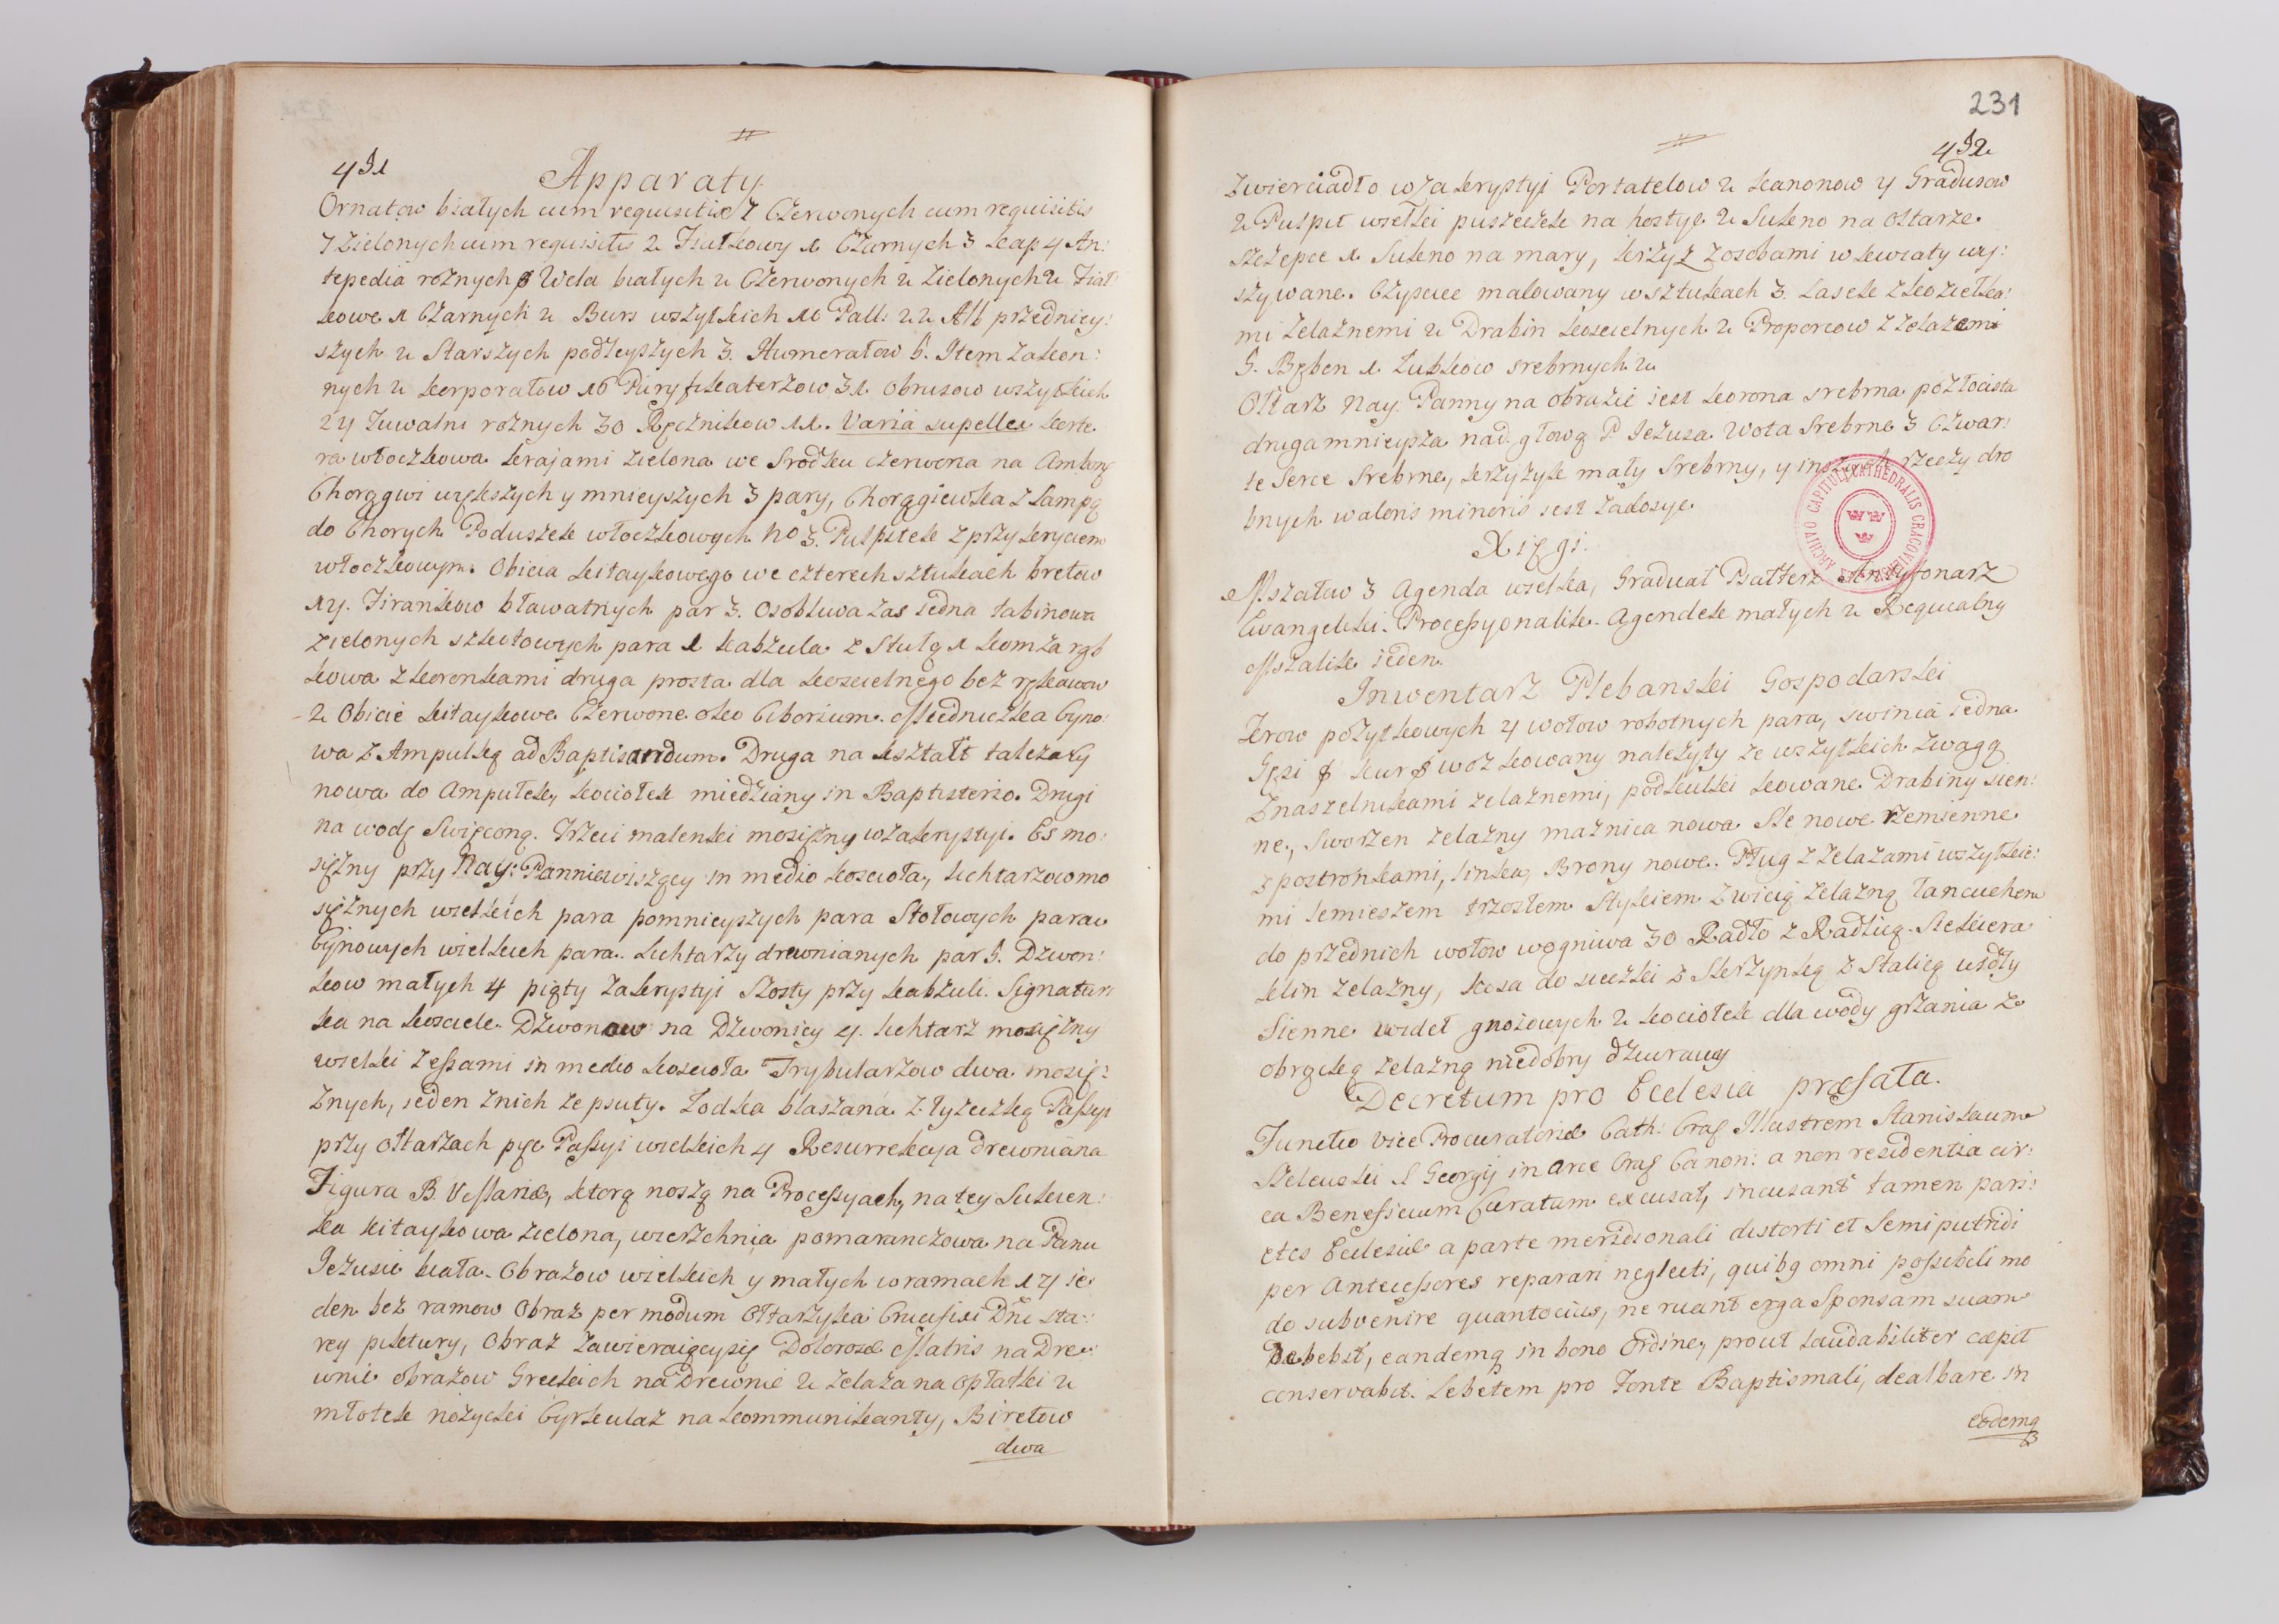 451
Apparaty.
Ornatow białych cum requisitis 7 Czerwonych cum requisitis
7 Zielonych cum requisitis 2 Fiałkowy 1 Czarnych 3 Kap 4 An:
tepedia rożnych 8 Wela białych 2 Czerwonych 2 Zielonych 2 Fiał
kowe 1 Czarnych 2 Burs wszytkich 10 Pall: 22 Alb przedniey:
szych 2 Starszych podleyszych 3. Humerałow 6. Item Zakon:
nych 2 korporałow 16 Puryfikaterzow 31. Obrusow wszytkich
24 Tuwalni rożnych 30 Ręcznikow 11. Varia supellex
ra włoczkowa krajami zielona we srodku czerwona na Ambonę
Chorągwi większych y mnieyszych 3 pary, Chorągiewka z Lampą
do Chorych Poduszek włoczkowych no 3. Pulpitek z przykryciem
włoczkowym. Obicia kitaykowego we czterech sztukach bretow
14. Firankow bławatnych par 3. Osobliwa zas iedna tabinowa
zielonych szkotowych para 1 kabzula z Stułą 1 komża rąb
kowa z koronkami druga prosta dla koscielnego bez rękawow
2 Obicie kitaykowe Czerwone oko Ciborium. Miedniczka Cyno:
wa z Ampułką ad Baptisandum. Druga na kształt talerza Cy
nowa do Ampułek, kociołek miedziany in Baptisterio. Drugi
na wodę Swięconą. Trzeci malenki mosiężny w zakrystyi. Es mo:
siężny przy Nay: Pannie wiszący in medio koscioła, lichtarzow mo
siężnych wielkich para pomnieyszych para Stołowych para
Cynowych wielkich para. Lichtarzy drewnianych par 6. Dzwon:
kow małych 4 piąty zakrystyi Szosty przy kabzuli. Signatur
ka na kosciele. Dzwonow na Dzwonicy 4. lichtarz mosiężny
wielki z essami in medio koscioła Trybularzow dwa mosię:
żnych, ieden z nich zepsuty. Łodka blaszana z łyżeczką Passyi
przy Ołtarzach pięc Passyi wielkich 4 Resurrekcya Drewniana
Figura B. V. Mariæ, ktorą noszą na Processyach, na tey Sukien:
ka kitaykowa zielona, wierzchnia pomaranczowa na Panu
Jezusie biała. Obrazow wielkich y małych w ramach 14 ie:
den bez ramow Obraz per modum Ołtarzyka Crucifixi Dni sta:
rey piktury, Obraz zawieraiącysię Dolorosæ Matris na Dre:
wnie obrazow Greckich na Drewnie 2 żelaza na opłatki 2
młotek nożyczki Cyrkulaz na kommunikanty, Biretow
dwa
231
452
Zwierciadło w Zakrystyi Portatelow 2 kanonow 4 Gradusow
2 Pulpit wielki puszczek na hostye 2 Sukno na Ołtarze
1 Sukno na mary, krzyż z osobami w kwiaty wy:
szywane. Czyściec malowany w sztukach 3. Lasek z
mi żelaznemi 2 Drabin koscielnych 2 Proporcow z żelazami
6. Bęben 1 Kubkow srebrnych 2.
Ołtarz Nay: Panny na obrazie iest korona srebrna pozłocista
druga mnieysza nad głową P. Jezusa Wota Srebrne 3 Czwar:
te Serce Srebrne, krzyżyk mały Srebrny, y inszych rzeczy dro
bnych valoris minoris iest zadosyc.
ARCHIVO CAPITULI CATHEDRALIS CRACOVIENSIS
Xięgi.
Mszałow 3 Agenda wielka, Graduał Psałterz Antyfonarz
Ewangeliki. Processyonalik. Agendek małych 2 Requialny
Mszalik ieden.
Inwentarz Plebanski Gospodarski
Krow pożytkowych 4 wołow robotnych para, swinia iedna
Gęsi 8 kur 8 woz kowany należyty ze wszytkich zwagą
z naszelnikami żelaznemi, podkulki kowane. Drabiny sien:
ne, Sworzen żelazny maznica nowa Sle nowe rzemienne
z postronkami, linka, Brony nowe. Pług z żelazami wszytkie:
mi lemieszem trzosłem Stykiem z wicią żelazną łancuchem
do przednich wołow w ogniwa 30 Radło z Radlicą. Siekiera
klin żelazny, kosa do sieczki z Skrzynką z Stalicą widły
Sienne wideł gnoiowych 2 kociołek dla wody grzania z
obręczką żelazną niedobry dziurawy
Decretum pro Ecclesia præfata.
Functio Vice Procuratoris Cath: Crac Illustrem Stanislaum
S Georgij in arce Crac Canon: a non residentia cir:
ca Beneficium Curatum excusat, incusant tamen pari:
etes Ecclesiæ a parte meridionali distorti et Semiputridi
per Antecessores reparari neglecti, quibq omni possibili mo
do subvenire quantocius, ne ruant erga Sponsam suam
Debebit, eandemq in bono Ordine, prout laudabiliter cæpit
conservabit. Lebetem pro Fonte Baptismali, dealbare in
eodemq